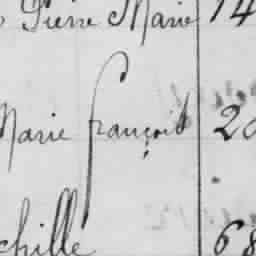 Pierre Marie 14
Marie françois 20
chille 68